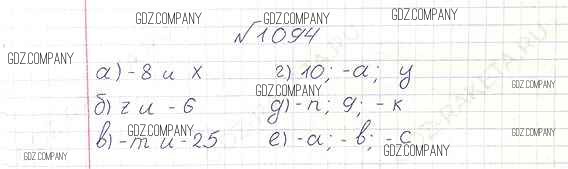 GDZ.COMPANY GDZ.COMPANY GDZ.COMPANY
№1094
GDZ.COMPANY
а) -8 и х г) 10; -а; у
GDZ.COMPANY GDZ.COMPANY
б) ч и -6 д) -п; q; -к
GDZ.COMPANY GDZ.COMPANY
в) -т и -25 е) -а; -в; -с
GDZ.COMPANY GDZ.COMPANY